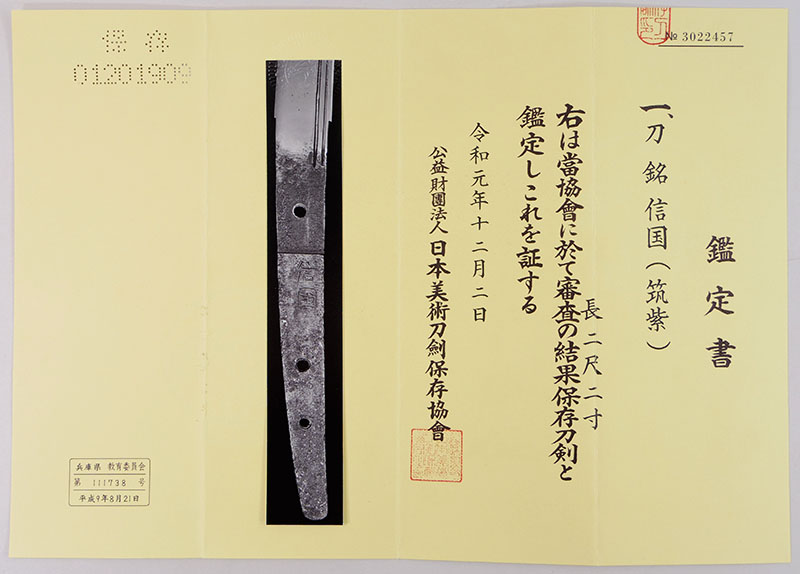 № 3022457
鑑定書
一、刀 銘 信国(筑紫)
長二尺二寸
右は當協會に於て審査の結果保存刀剣と
鑑定しこれを証する
令和元年十二月二日
公益財團法人 日本美術刀劍保存協會
信国
保存
01201909
兵庫県 教育委員会
第 111738 号
平成9年8月21日